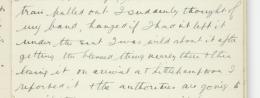 train pulled out I suddenly thought of
my band, hanged if I had not left it
under the seat I was wild about it after
getting the blessed thing nearly there & then
losing it on arrival at Littlehampton I
reported it & the authorities are going to